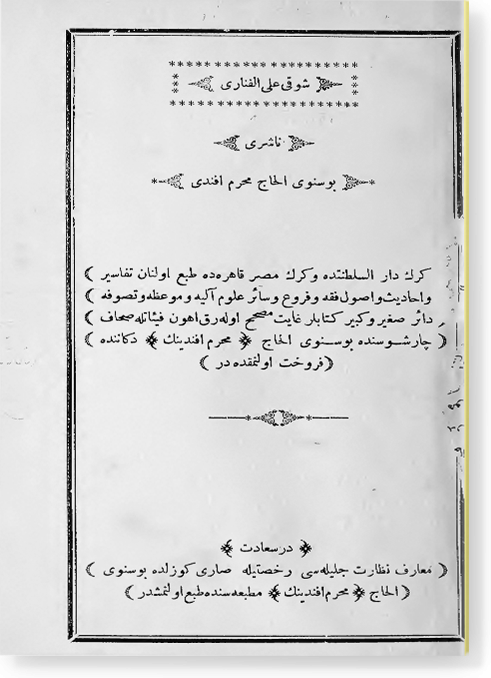 شوقى على الفنارى
ناشرى
بوسنوى الحاج محرم افندى
كرك دار السلطنتده وكرك مصر قاهره ده طبع اولنان تفاسير
واحاديث واصول فقه وفروع وسائر علوم آليه وموعظه وتصوفه
دائر صغير وكبير كتابلر غايت مصحح اوله رق اهون فيئاتله صحاف
چارشوسنده بوسنوى الحاج محرم افندينك دكاننده
(فروخت اولنمقده در)
در سعادت
(معارف نظارت جليله سى رخصتيله صارى كوزلده بوسنوى)
(الحاج محرم افندينك مطبعه سنده طبع اولنمشدر)